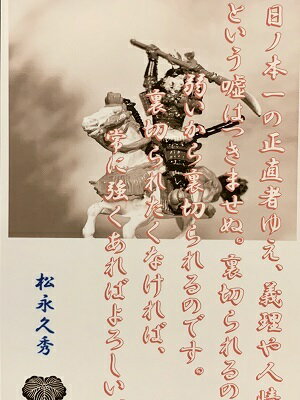 目ノ本一の正直者ゆえ、義理や人情
という嘘はつきませぬ。裏切られるの
弱いから裏切られるのです。
裏切られたくなければ、
常に強くあればよろしい
松永久秀